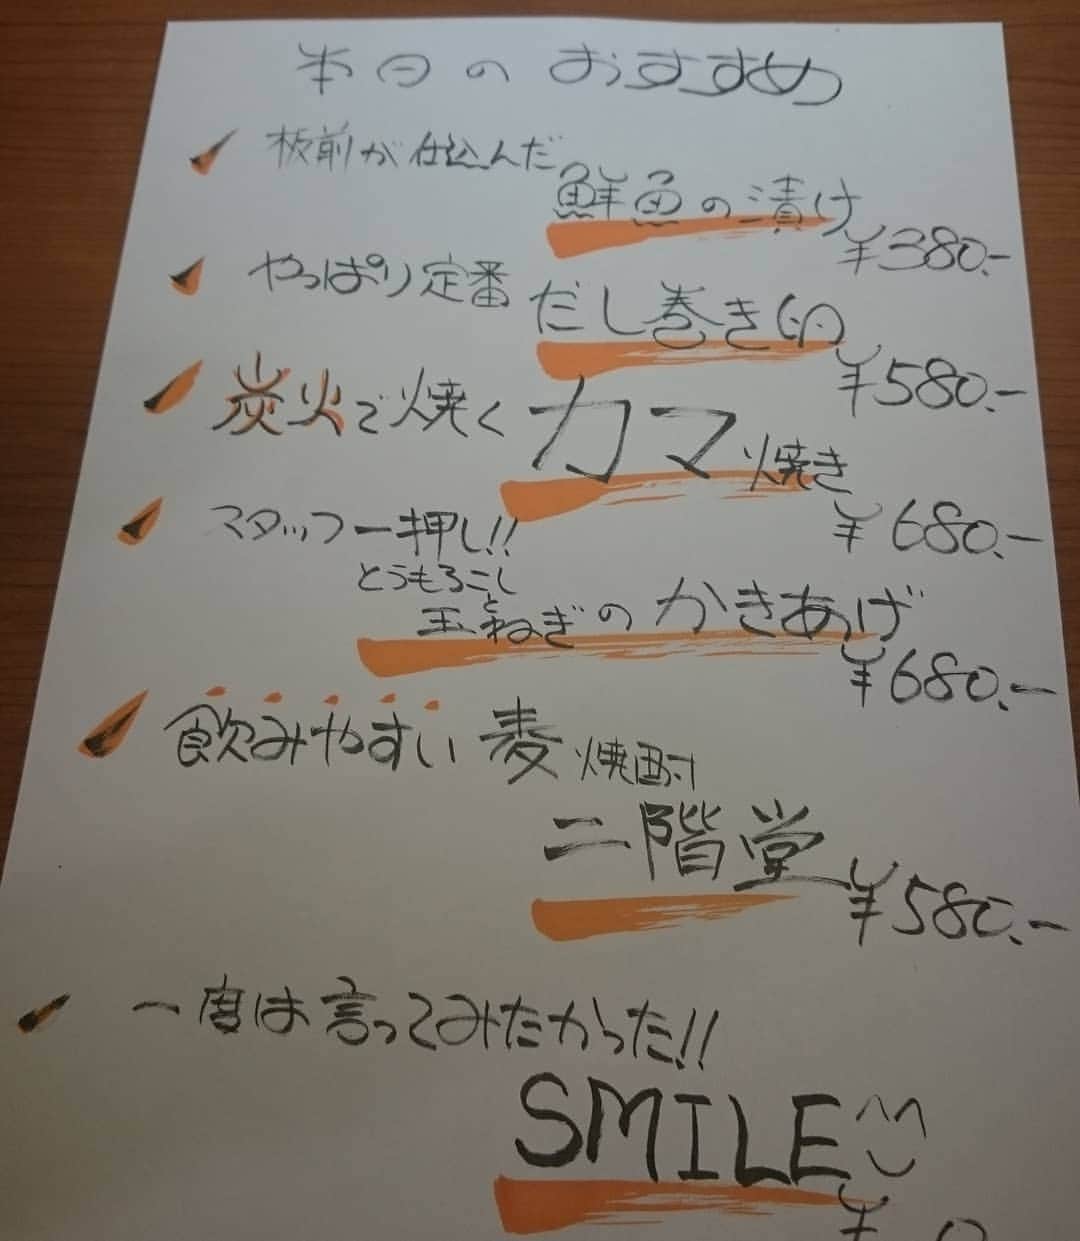 本日のおすすめ
板前が仕込んだ
鮮魚の漬け
¥380.-
やっぱり定番 だし巻き卵
¥580.-
炭火で焼く カマ焼き
¥680.-
スタッフ一押し!!
とうもろこし
と
玉ねぎの かきあげ
¥680.-
飲みやすい 麦焼酎
二階堂 ¥580.-
一度は言ってみたかった!!
SMILE
¥0